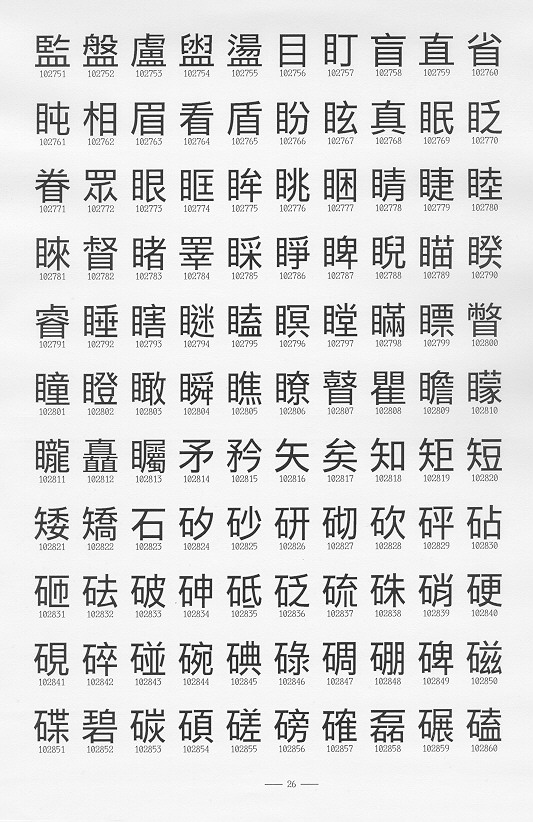 監 盤 盧 盥 盪 目 盯 盲 直 省
102751 102752 102753 102754 102755 102756 102757 102758 102759 102760
盹 相 眉 看 盾 盼 眩 真 眠 眨
102761 102762 102763 102764 102765 102766 102767 102768 102769 102770
眷 眾 眼 眶 眸 眺 睏 睛 睫 睦
102771 102772 102773 102774 102775 102776 102777 102778 102779 102780
睞 督 睹 睪 睬 睜 睥 睨 瞄 睽
102781 102782 102783 102784 102785 102786 102787 102788 102789 102790
睿 睡 瞎 瞇 瞌 瞑 瞠 瞞 瞟 瞥
102791 102792 102793 102794 102795 102796 102797 102798 102799 102800
瞳 瞪 瞰 瞬 瞧 瞭 瞽 瞿 瞻 矇
102801 102802 102803 102804 102805 102806 102807 102808 102809 102810
矓 矗 矚 矛 矜 矢 矣 知 矩 短
102811 102812 102813 102814 102815 102816 102817 102818 102819 102820
矮 矯 石 矽 砂 研 砌 砍 砰 砧
102821 102822 102823 102824 102825 102826 102827 102828 102829 102830
砸 砝 破 砷 砥 砭 硫 硃 硝 硬
102831 102832 102833 102834 102835 102836 102837 102838 102839 102840
硯 碎 碰 碗 碘 碌 碉 硼 碑 磁
102841 102842 102843 102844 102845 102846 102847 102848 102849 102850
碟 碧 碳 碩 磋 磅 確 磊 碾 磕
102851 102852 102853 102854 102855 102856 102857 102858 102859 102860
— 26 —